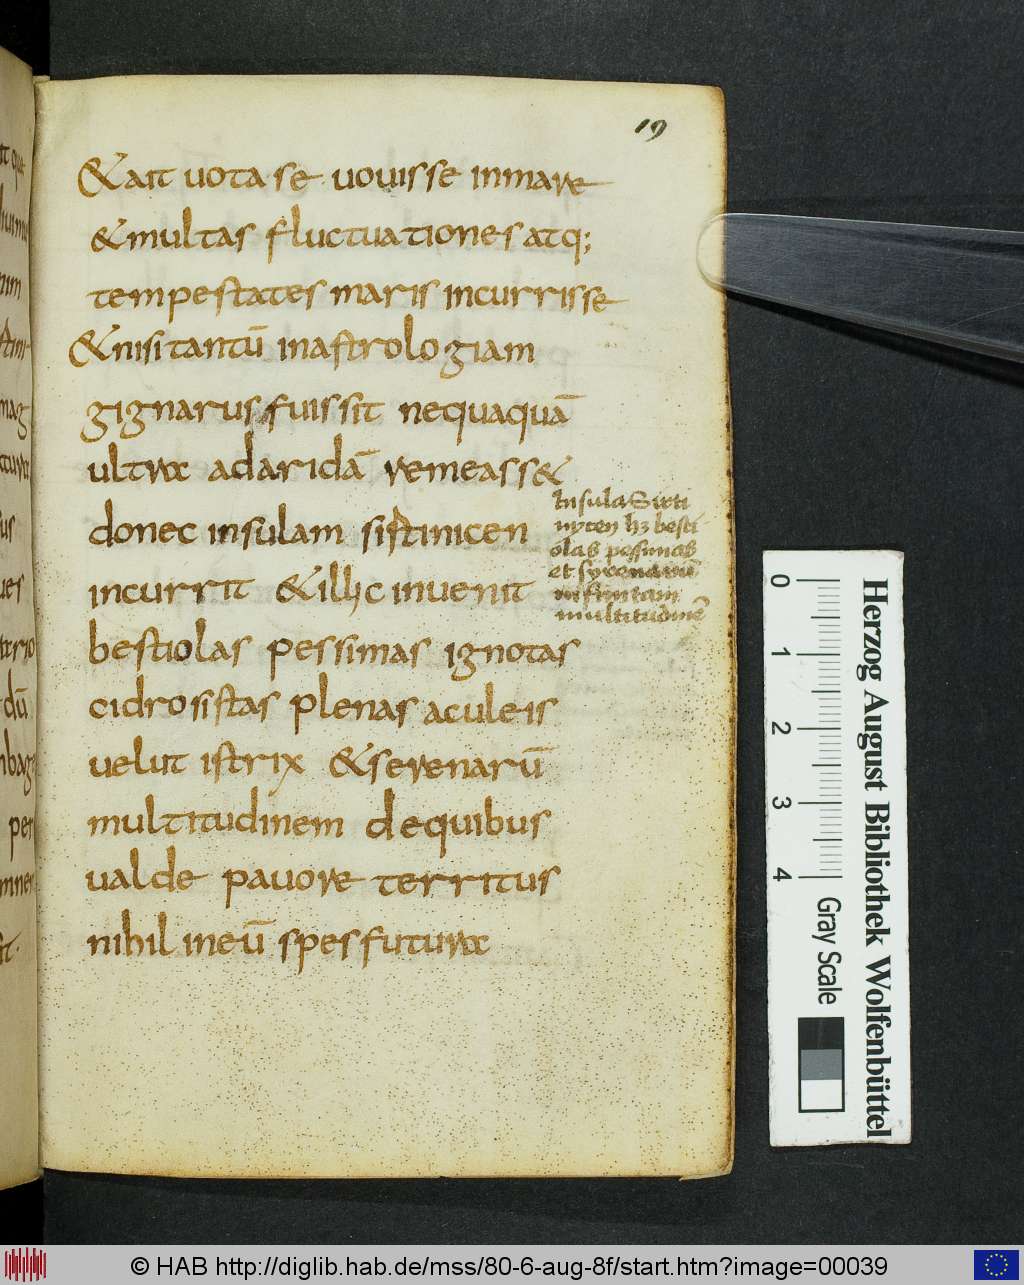 19
& ait uota se uouisse inmare
& multas fluctuationes atq;
tempestates maris incurrisse
& nisi tantū inastrologiam
gignarus fuissit nequaquā
ultra adaridā remeass&
donec insulam sistinicen
incurrit & illic inuenit
bestiolas pessimas ignotas
cidrosistas plenas aculeis
uelut istrix & serenarū
multitudinem dequibus
ualde pauore territus
nihil ineū spes futura
Insula Sirti
nycen hꝫ besti
olas pessimas
et syrenarū
infinitam
multitudinē
Herzog August Bibliothek Wolfenbüttel
0 1 2 3 4
Gray Scale
© HAB http://diglib.hab.de/mss/80-6-aug-8f/start.htm?image=00039